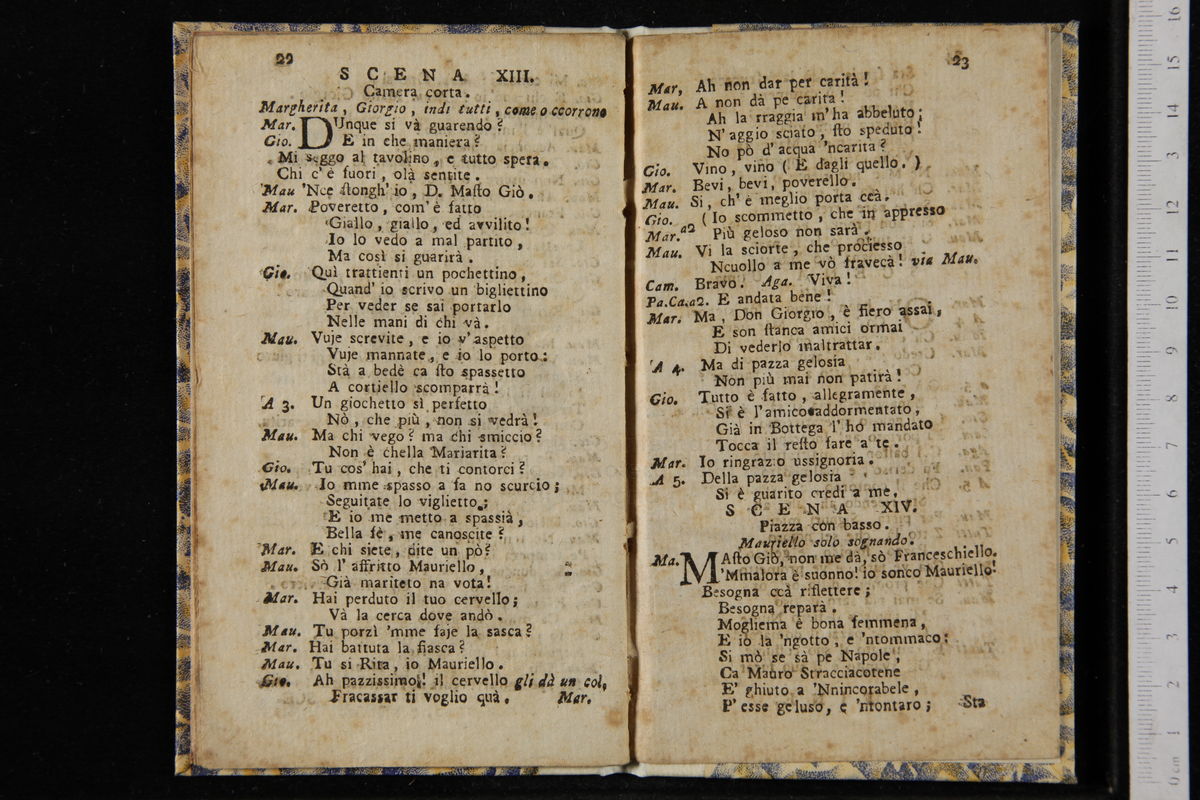 22
SCENA XIII.
Camera corta.
Margherita, Giorgio, indi tutti, come occorrono
Mar. DUnque si và guarendo?
Gio. E in che maniera?
Mi seggo al tavolino, e tutto spera.
Chi c'è fuori, olà sentite.
Mau 'Nce ſtongh' io, D. Maſto Giò.
Mar. Poveretto, com' è fatto
Giallo, giallo, ed avvilito!
Io lo vedo a mal partito,
Ma così si guarirà.
Gio. Quì trattienti un pochettino,
Quand' io scrivo un bigliettino
Per veder se sai portarlo
Nelle mani di chi và.
Mau. Vuje screvite, e io v'aspetto
Vuje mannate, e io lo porto:
Stà a bedè ca ſto spassetto
A cortiello scomparrà!
A 3. Un giochetto sì perfetto
Nò, che più, non si vedrà!
Mau. Ma chi vego? ma chi smiccio?
Non è chella Mariarita?
Gio. Tu cos' hai, che ti contorci?
Mau. Io mme spasso a fa no scurcio;
Seguitate lo viglietto.;
E io me metto a spassià,
Bella fè, me canoscite?
Mar. E chi siete, dite un pò?
Mau. Sò l' affritto Mauriello,
Già mariteto na vota!
Mar. Hai perduto il tuo cervello;
Và la cerca dove andò.
Mau. Tu porzì 'mme faje la sasca?
Mar. Hai battuta la fiasca?
Mau. Tu si Rita, io Mauriello.
Gio. Ah pazzissimo! il cervello gli dà un col,
Fracassar ti voglio quà. Mar.
23
Mar, Ah non dar per carità!
Mau. A non dà pe carità!
Ah la rraggia m'ha abbeluto;
N' aggio sciato, ſto speduto!
No pò d' acqua 'ncarita?
Gio. Vino, vino (E dagli quello.)
Mar. Bevi, bevi, poverello.
Mau. Si, ch' è meglio porta ccà.
Gio. (Io scommetto, che in appresso
Mar. a2 Più geloso non sarà.
Mau. Vi la sciorte, che prociesso
Ncuollo a me vò fravecà! via Mau.
Cam. Bravo. Aga. Viva!
Pa.Ca.a2. E andata bene!
Mar. Ma, Don Giorgio, è fiero assai,
E son ſtanca amici ormai
Di vederlo maltrattar.
A 4. Ma di pazza gelosia
Non più mai non patirà!
Gio. Tutto è fatto, allegramente,
Si è l'amico addormentato,
Già in Bottega l' ho mandato
Tocca il reſto fare a te.
Mar. Io ringrazio ussignoria.
A 5. Della pazza gelosia
Si è guarito credi a me.
SCENA XIV.
Piazza con basso.
Mauriello solo sognando.
Ma. MAſto Giò, non me dà, sò Franceschiello.
'Mmalora è suonno! io sonco Mauriello!
Besogna ccà riflettere;
Besogna reparà.
Mogliema è bona femmena,
E iò la 'ngotto, e 'ntommaco:
Si mò se sà pe Napole,
Ca Mauro Stracciacotene
E' ghiuto a 'Nnincorabele,
P' esse geluso, e 'ntontaro; Sta